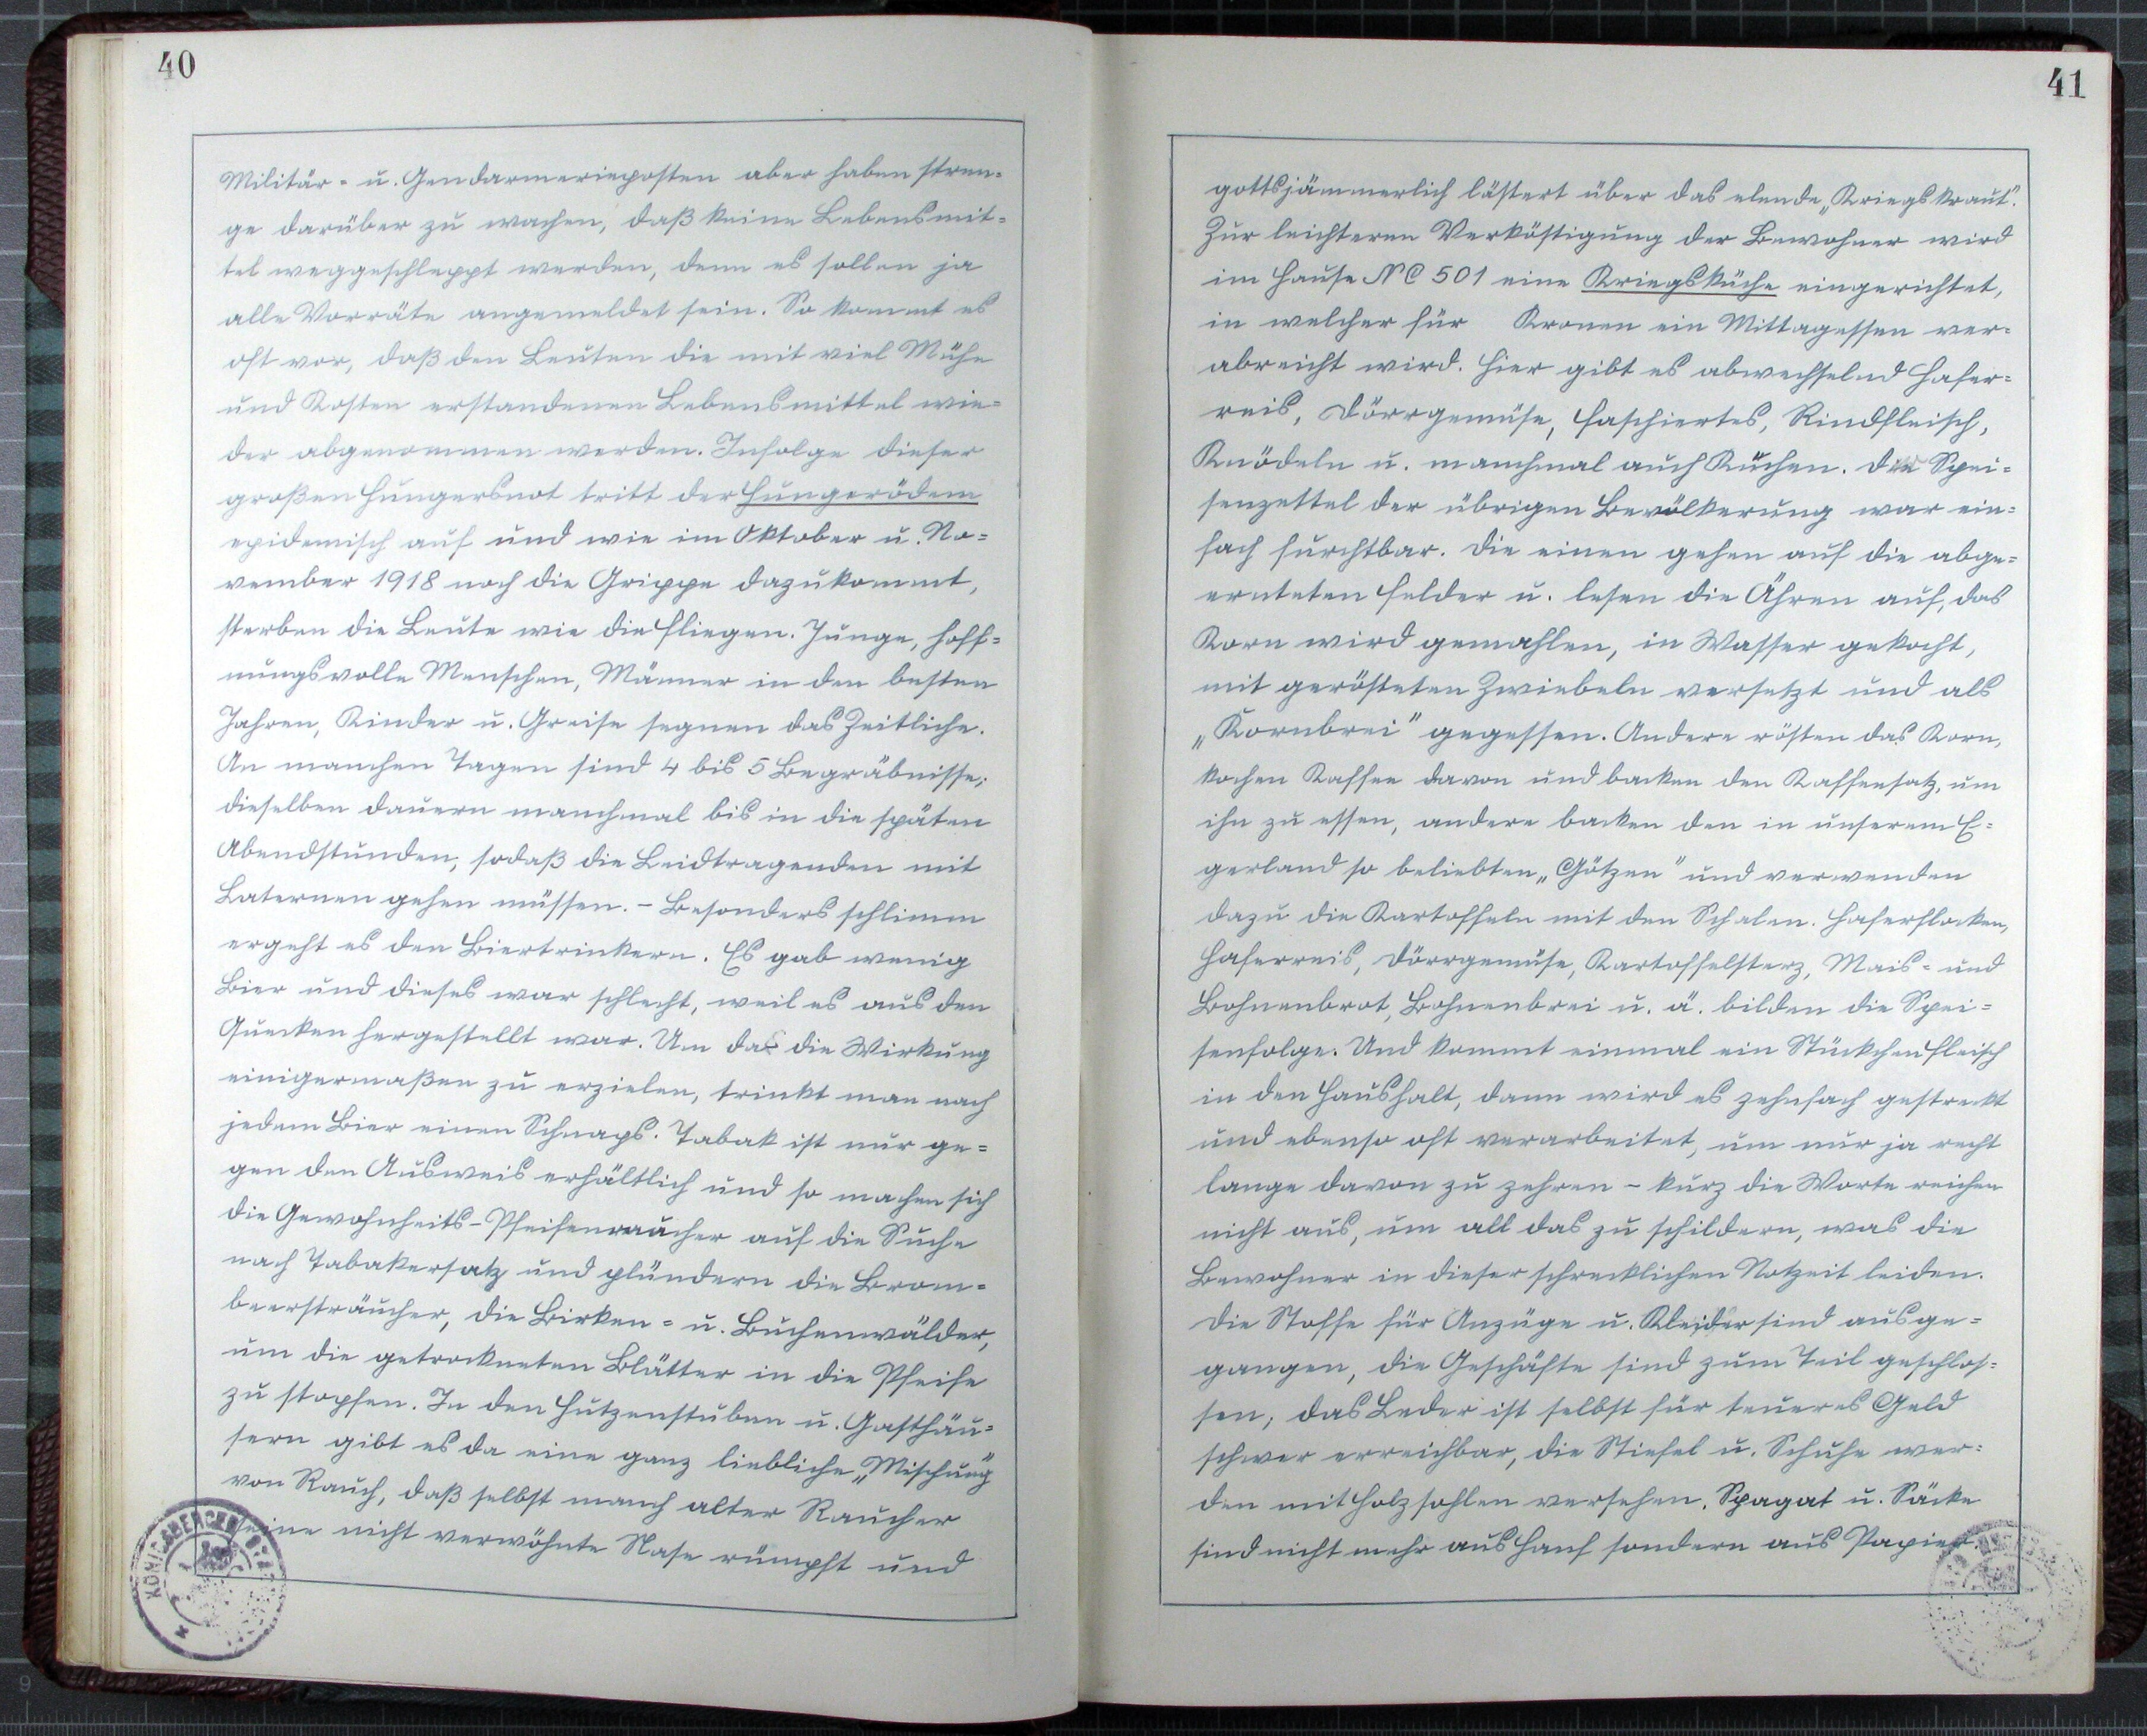 40
Militär- u. Gendarmerieposten aber haben stren-
ge darüber zu wachen, daß keine Lebensmit-
tel weggeschleppt werden, denn es sollen ja
alle Vorräte angemeldet sein. So kommt es
oft vor, daß den Leuten die mit viel Mühe
und Kosten erstandenen Lebensmittel wie-
der abgenommen werden. Infolge dieser
großen Hungersnot tritt der Hungerödem
epidemisch auf und wie im Oktober u. No-
vember 1918 noch die Grippe dazukommt,
sterben die Leute wie die Fliegen. Junge, hoff-
nungsvolle Menschen, Männer in den besten
Jahren, Kinder u. Greise segnen das Zeitliche.
An manchen Tagen sind 4 bis 5 Begräbnisse;
dieselben dauern manchmal bis in die späten
Abendstunden, sodaß die Leidtragenden mit
Laternen gehen müssen. - Besonders schlimm
ergeht es den Biertrinkern. Es gab wenig
Bier und dieses war schlecht, weil es aus den
Quecken hergestellt war. Um das die Wirkung
einigermaßen zu erzielen, trinkt man nach
jedem Bier einen Schnaps. Tabak ist nur ge-
gen den Ausweis erhältlich und so machen sich
die Gewohnheits-Pfeifenraucher auf die Suche
nach Tabakersatz und plündern die Brom-
beersträucher, die Birken- u. Buchenwälder,
um die getrockneten Blätter in die Pfeife
zu stopfen. In den Hutzenstuben u. Gasthäu-
sern gibt es da eine ganz liebliche „Mischung"
von Rauch, daß selbst manch alter Raucher
seine nicht verwöhnte Nase rümpft und
41
gottsjämmerlich lästert über das elende „Kriegskraut".
Zur leichteren Verköstigung der Bewohner wird
im Hause NC 501 eine Kriegsküche eingerichtet,
in welcher für Kronen ein Mittagessen ver-
abreicht wird. Hier gibt es abwechselnd Hafer-
reis, Dörrgemüse, Faschiertes, Rindfleisch,
Knödeln u. manchmal auch Kuchen. Der Spei-
senzettel der übrigen Bevölkerung war ein-
fach furchtbar. Die einen gehen auf die abge-
ernteten Felder u. lesen die Ähren auf, das
Korn wird gemahlen, in Wasser gekocht,
mit gerösteten Zwiebeln versetzt und als
„Kornbrei" gegessen. Andere rösten das Korn,
kochen Kaffee davon und backen den Kaffeesatz, um
ihn zu essen, andere backen den in unserem E-
gerland so beliebten „Götzen" und verwenden
dazu die Kartoffeln mit den Schalen. Haferflocken,
Haferreis, Dörrgemüse, Kartoffelsterz, Mais- und
Bohnenbrot, Bohnenbrei u. ä. bilden die Spei-
senfolge. Und kommt einmal ein Stückchen Fleisch
in den Haushalt, dann wird es zehnfach gestreckt
und ebenso oft verarbeitet, um nur ja recht
lange davon zu zehren - kurz die Worte reichen
nicht aus, um all das zu schildern, was die
Bewohner in dieser schrecklichen Notzeit leiden.
Die Stoffe für Anzüge u. Kleider sind ausge-
gangen, die Geschäfte sind zum Teil geschlos-
sen; das Leder ist selbst für teueres Geld
schwer erreichbar, die Stiefel u. Schuhe wer-
den mit Holzsohlen versehen. Spagat u. Säcke
sind nicht mehr aus Hanf sondern aus Papier.